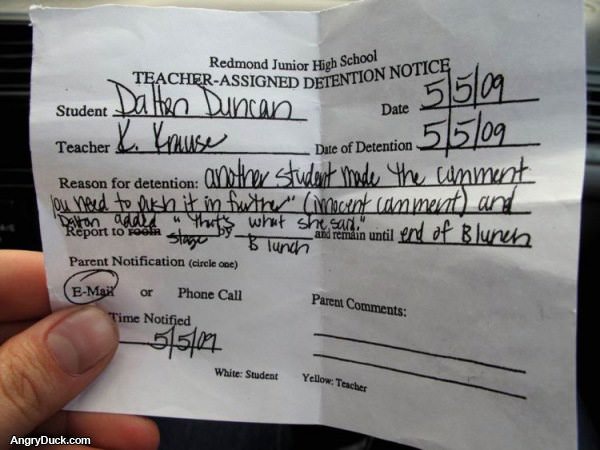 Redmond Junior High School
TEACHER-ASSIGNED DETENTION NOTICE
Student Dalton Duncan Date 5/5/09
Teacher K. Krause Date of Detention 5/5/09
Reason for detention: another student made the comment
"you need to push it in further" (innocent comment) and
Dalton added "that's what she said."
Report to room stage by B lunch and remain until end of B lunch
Parent Notification (circle one)
E-Mail or Phone Call Parent Comments:
Time Notified
5/5/09
White: Student Yellow: Teacher
AngryDuck.com